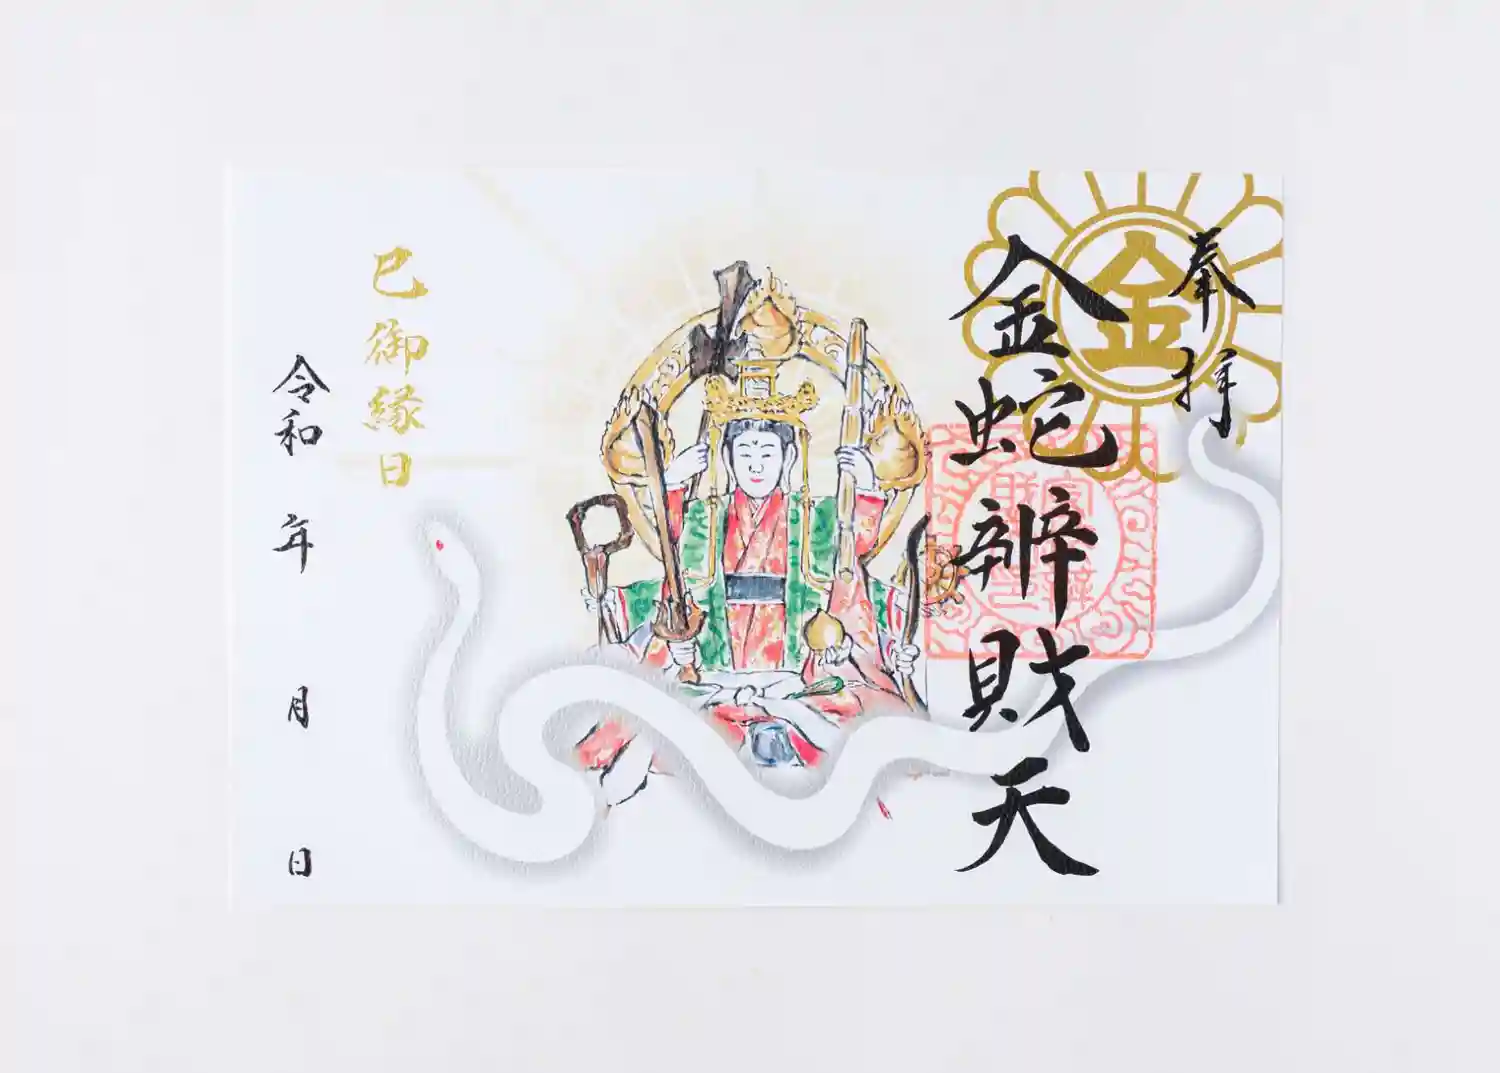 奉拝
金
金蛇辨財天
巳御縁日
令和 年 月 日